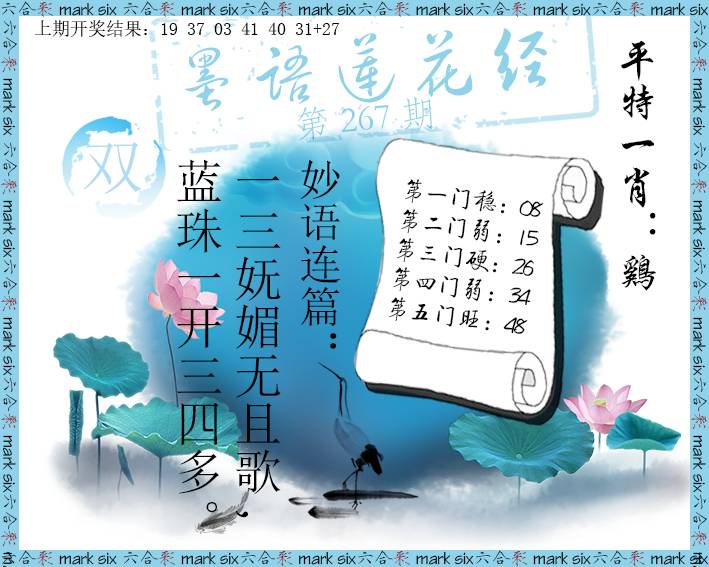 上期开奖结果：19 37 03 41 40 31+27
墨语莲花经
第 267 期
双
平特一肖：鷄
妙语连篇：
一三妩媚无且歌、
蓝珠一开三四多。
第一门稳：08
第二门弱：15
第三门硬：26
第四门弱：34
第五门旺：48
mark six六合彩 mark six六合彩 mark six六合彩 mark six六合彩 mark six六合彩 mark six六合彩